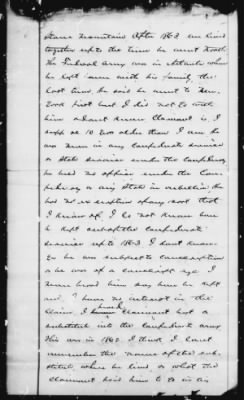 Stone Mountain. After 1863 we lived
together up to the time he went North
The Federal Army was in Atlanta when
he left home with his family, the
last time, he said he went to New
York first but I did not go with
him when I knew Claimant is, I
suppose 10 years older than I am he
was never in any Confederate service
or State service under the Confederacy
he held no office under the Con-
federacy or any State in rebellion he
had no exemption of any sort that
I know of, I do not know how
he kept out of the Confederate
service up to 1863 I don't know
he was subject to conscription
or he was of a age I
never heard him say how he kept
out. I have no interest in the
claim, I heard Claimant had a
substitute in the Confederate army
this was in 1862 I think, I can't
remember the name of the sub-
stitute where he lived or what the
Claimant paid him to go in as